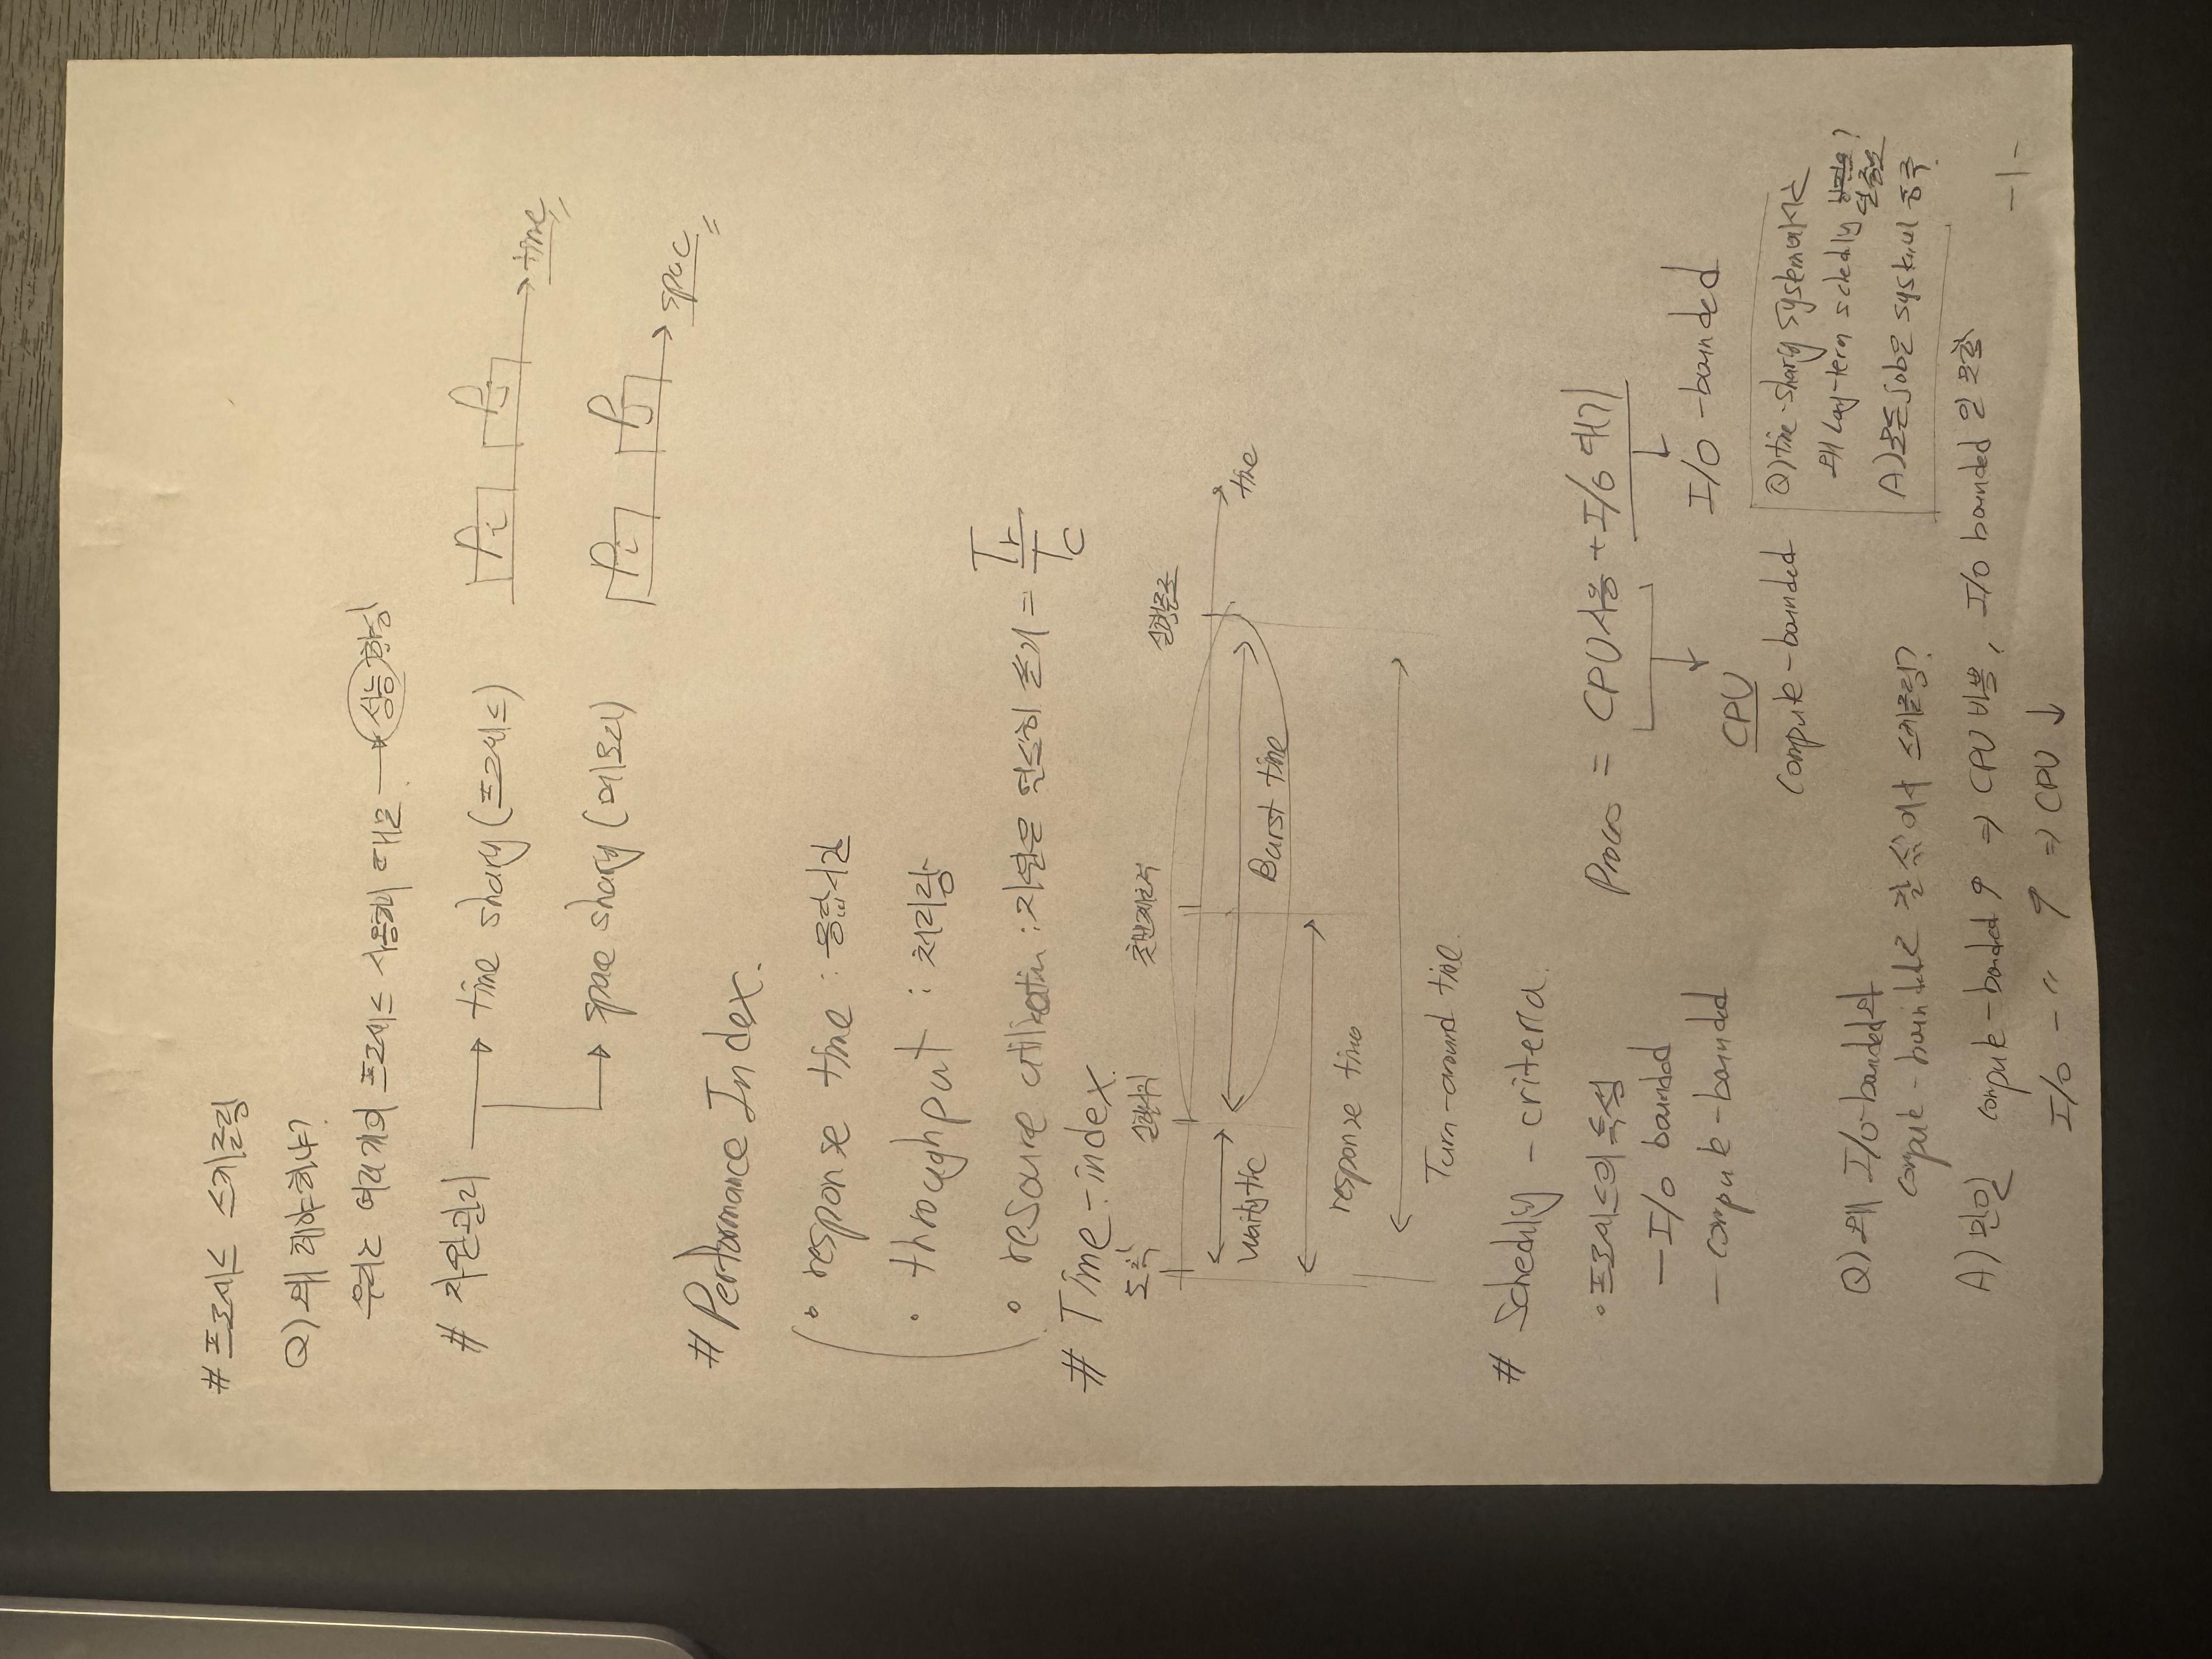 # 프로세스 스케줄링
Q) 왜 해야하냐?
우리는 여러개의 프로세스 사용하기 때문 → 성능향상
# 자원관리 → time sharing (프로세스) Pi Pj time
→ space sharing (메모리) Pi Pj space
# Performance Index.
• response time : 응답시간
• throughput : 처리량
• resource utilization : 자원을 열심히 쓰기 = Tr/Tc
# Time-index.
도착 실행시작 첫번째출력 실행종료
time
waiting time Burst time
response time
Turn-around time.
# Scheduling - criteria.
• 프로세스의 특성 Process = CPU사용 + I/O 대기
- I/O bounded
- compute-bounded I/O-bounded
CPU
compute-bounded
Q) time-sharing system에서는
왜 long-term scheduling 불필요?
덜중요
A) 모든 job은 system에 등록.
Q) 왜 I/O-bounded와
compute-bounded로 잘 섞어서 스케줄링?
A) 만일 compute-bounded ↑ => CPU 바쁨, I/O bounded 일 못함
I/O - " ↑ => CPU ↓
-1-